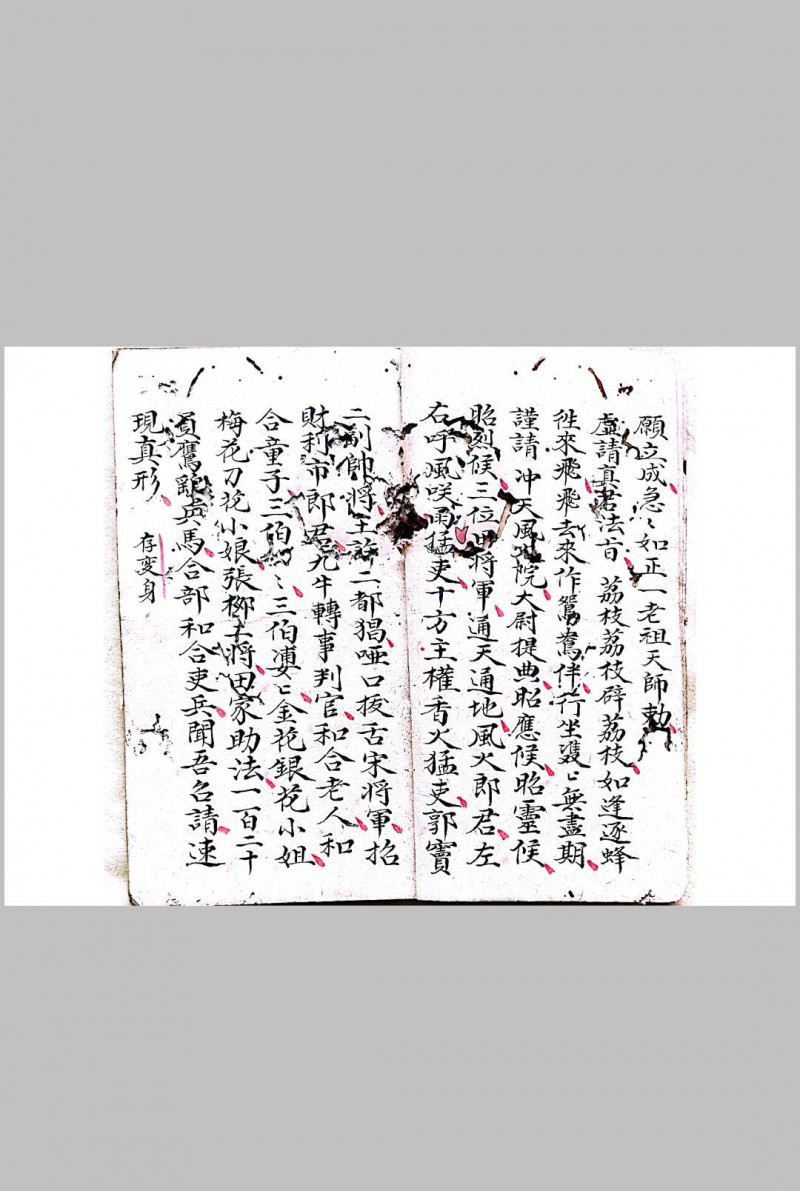 願立成急〻如正一老祖天師勅
虛請真君法旨 荔枝荔枝辟荔枝如逢逐蜂
徃來飛飛去來作鴛鴦伴行坐䨇〻無盡期
謹請 冲天風火院大尉提典昭應候昭靈候
昭烈候三位田將軍通天通地風火郎君左
右呼風咲雨猛吏十方主權香火猛吏郭竇
二副帥將 二都猖啞口拔舌宋將軍招
財利市郎君九牛轉事判官和合老人和
合童子三伯 〻三伯婆〻金花銀花小姐
梅花刀花小娘張柳 將田家助法一百二十
員鷹 兵馬合部和合吏兵聞吾名請速
現真形 存変身